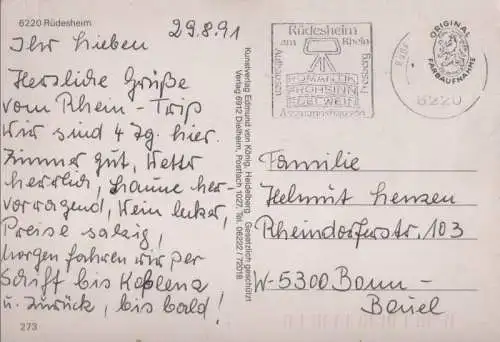 6220 Rüdesheim
29.8.91
Ihr Lieben
Herzliche Grüße
vom Rhein-Trip
Wir sind 4 Tg. hier.
Zimmer gut, Wetter
herrlich, Laune her-
vorragend, Wein lecker,
Preise salzig,
Morgen fahren wir per
Schiff bis Koblenz
u. zurück, bis bald!
273
Kunstverlag Edmund von König, Heidelberg Gesetzlich geschützt
Verlag 6912 Dielheim, Postfach 1027, Tel. 06222 / 72018
Rüdesheim
am Rhein
ROMANTIK
FROHSINN
EDELWEIN
Assmannshausen
Aulhausen
Presberg
6220
ORIGINAL
FARBAUFNAHME
Familie
Helmut Henzen
Rheindorferstr. 103
W-5300 Bonn-
Beuel